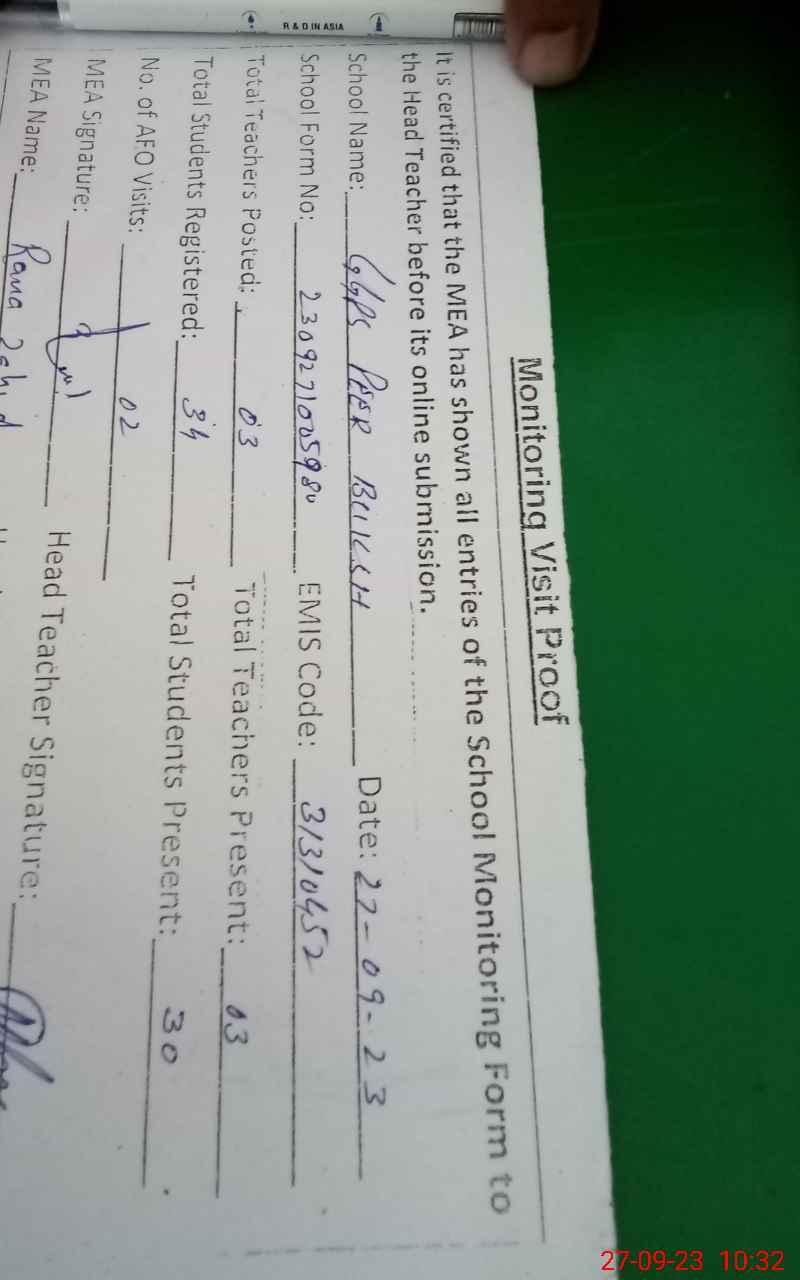 Monitoring Visit Proof
It is certified that the MEA has shown all entries of the School Monitoring Form to
the Head Teacher before its online submission.
School Name: GGPS PEER BUKSH Date: 27-09-23
School Form No: 230927100598 EMIS Code: 31310452
Total Teachers Posted: 03 Total Teachers Present: 03
Total Students Registered: 34 Total Students Present: 30
No. of AFO Visits: 02
MEA Signature: Head Teacher Signature:
MEA Name: Rana
R & D IN ASIA
27-09-23 10:32